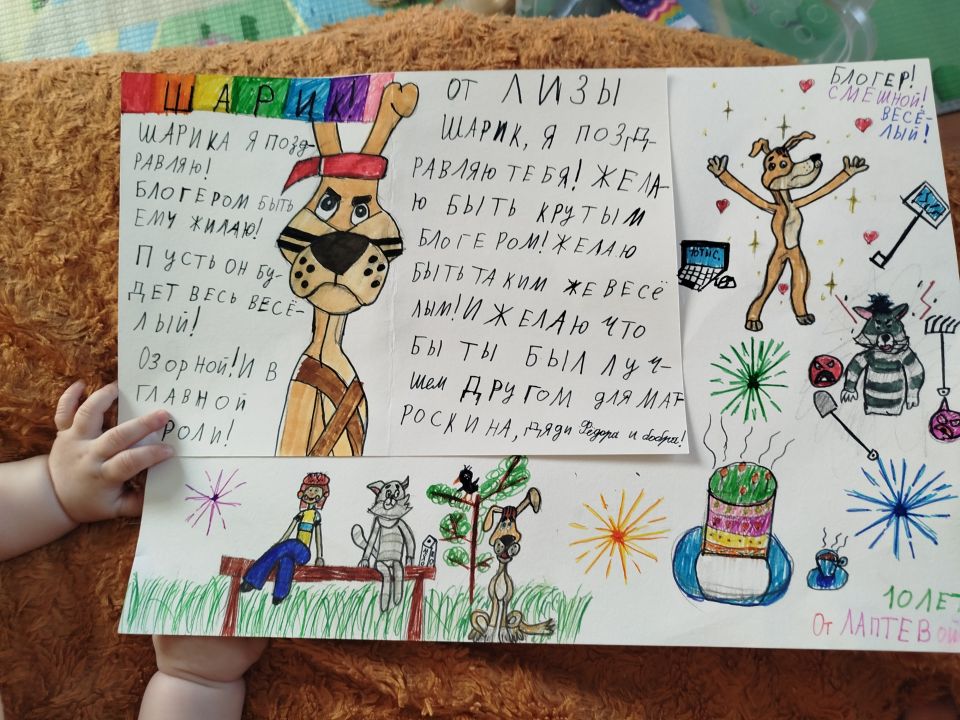 ШАРИК!
ШАРИКА Я ПОЗД-
РАВЛЯЮ!
БЛОГЕРОМ БЫТЬ
ЕМУ ЖИЛАЮ!
ПУСТЬ ОН БУ-
ДЕТ ВЕСЬ ВЕСЁ-
ЛЫЙ!
ОЗОРНОЙ! И В
ГЛАВНОЙ
РОЛИ!
ОТ ЛИЗЫ
ШАРИК, Я ПОЗД-
РАВЛЯЮ ТЕБЯ! ЖЕЛА-
Ю БЫТЬ КРУТЫМ
БЛОГЕРОМ! ЖЕЛАЮ
БЫТЬ ТАКИМ ЖЕ ВЕСЁ
ЛЫМ! И ЖЕЛАЮ ЧТО
БЫ ТЫ БЫЛ ЛУЧ-
ШЕМ ДРУГОМ ДЛЯ МАТ-
РОСКИНА, ДЯДИ Фёдора и бобра!
БЛОГЕР!
СМЕШНОЙ!
ВЕСЁ-
ЛЫЙ!
10 ЛЕТ
От ЛАПТЕВОЙ